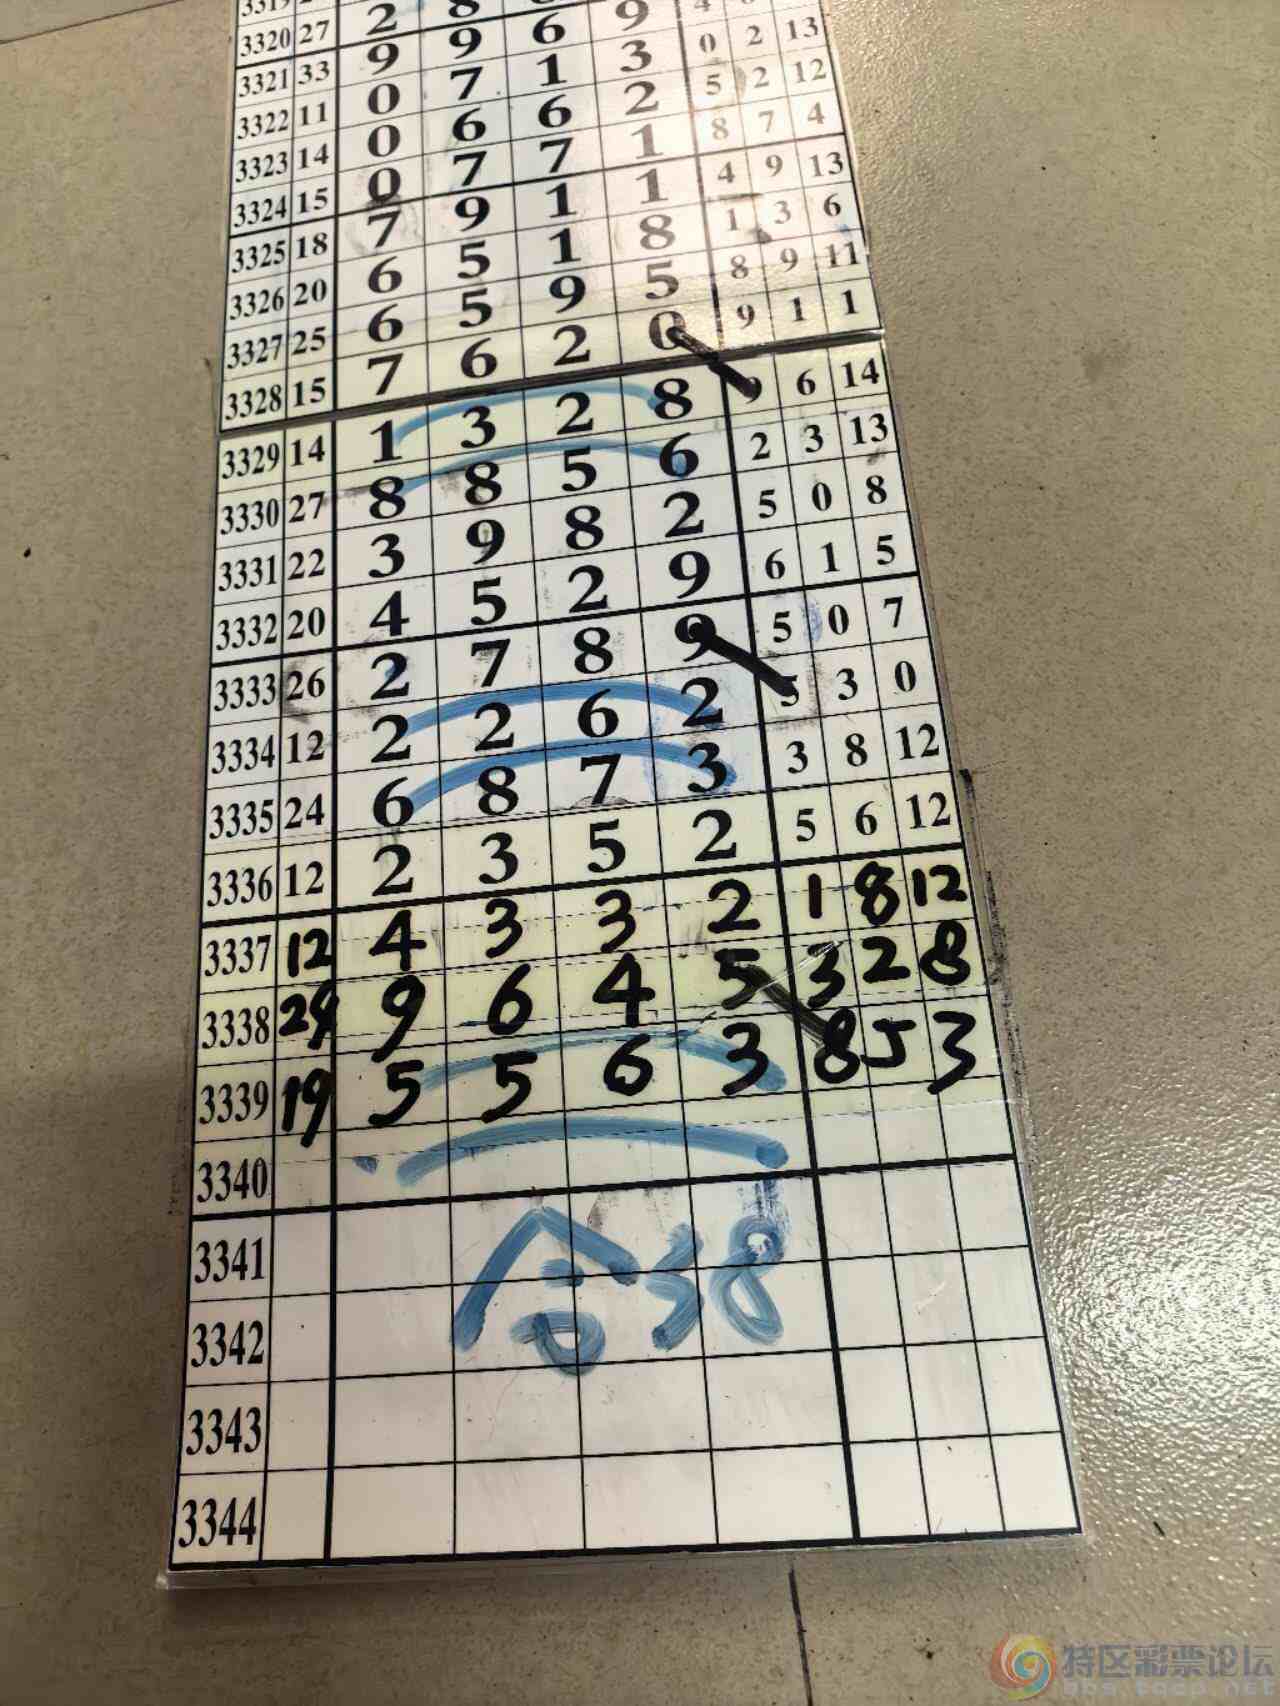 3319
3320 27 2 8
3321 33 9 9 6 9 4
3322 11 0 7 1 3 0 2 13
3323 14 0 6 6 2 5 2 12
3324 15 0 7 7 1 8 7 4
3325 18 7 9 1 1 4 9 13
3326 20 6 5 1 8 1 3 6
3327 25 6 5 9 5 8 9 11
3328 15 7 6 2 0 9 1 1
3329 14 1 3 2 8 9 6 14
3330 27 8 8 5 6 2 3 13
3331 22 3 9 8 2 5 0 8
3332 20 4 5 2 9 6 1 5
3333 26 2 7 8 9 5 0 7
3334 12 2 2 6 2 5 3 0
3335 24 6 8 7 3 3 8 12
3336 12 2 3 5 2 5 6 12
3337 12 4 3 3 2 1 8 12
3338 24 9 6 4 5 3 2 8
3339 19 5 5 6 3 8 5 3
3340
3341
合38
3342
3343
3344
特区彩票论坛
bbs.tqcp.net